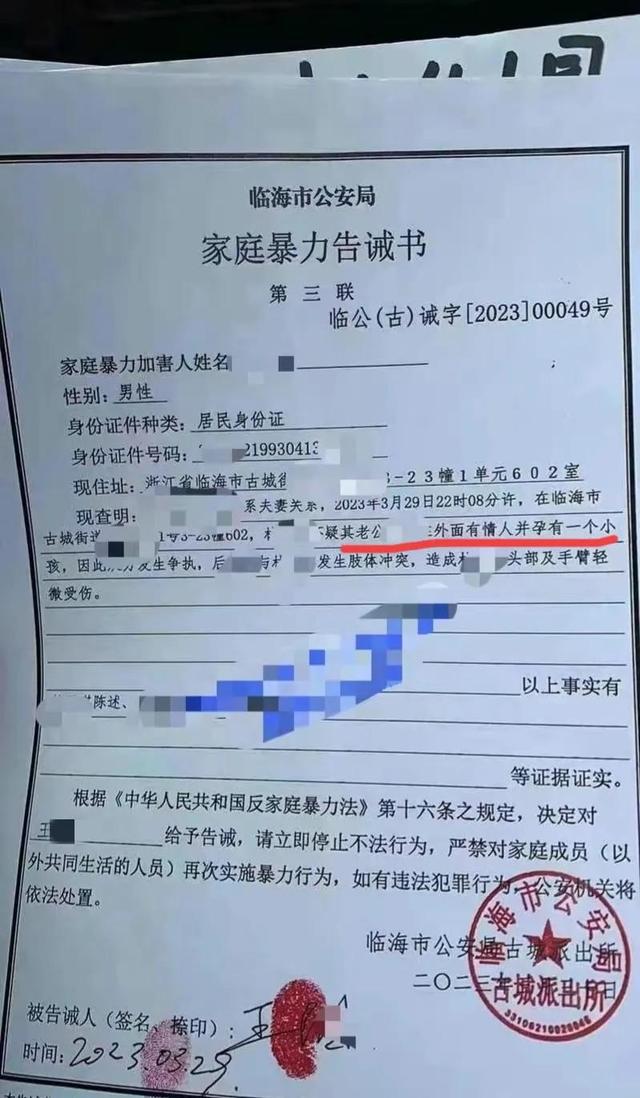 临海市公安局
家庭暴力告诫书
第三联
临公(古)诫字[2023]00049号
家庭暴力加害人姓名
性别: 男性
身份证件种类: 居民身份证
身份证件号码: 219930413
现住址: 浙江省临海市古城街 3-23幢1单元602室
现查明: 系夫妻关系, 2023年3月29日22时08分许, 在临海市
古城街道 3-23幢602, 疑其老公 外面有情人并孕有一个小
孩, 因此 发生争执, 后 与 发生肢体冲突, 造成 头部及手臂轻
微受伤。
陈述、 以上事实有
等证据证实。
根据《中华人民共和国反家庭暴力法》第十六条之规定, 决定对
王 给予告诫, 请立即停止不法行为, 严禁对家庭成员(以
外共同生活的人员)再次实施暴力行为, 如有违法犯罪行为, 公安机关将
依法处置。
临海市公安局古城派出所
二〇二三年 日
临海市公安局
古城派出所
被告诫人(签名、捺印): 王
时间: 2023.03.29